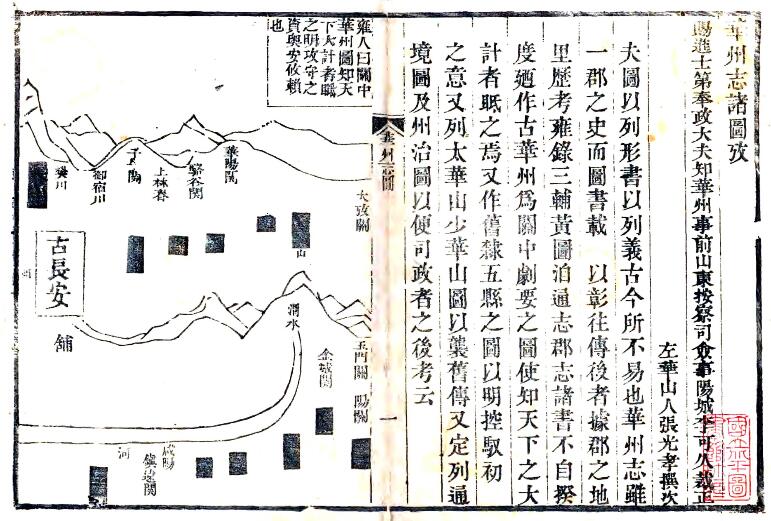 華州志諸圖攷
賜進士第奉政大夫知華州事前山東按察司僉事陽城李可久裁正
左華山人張光孝撰次
夫圖以列形書以列義古今所不易也華州志雖
一郡之史而圖書載 以彰往傳後者據郡之地
里歷考雍錄三輔黃圖洎通志郡志諸書不自揆
度廼作古華州爲關中劇要之圖使知天下之大
計者眡之焉又作舊隸五縣之圖以明控馭初
之意又列太華山少華山圖以襲舊傳又定列通
境圖及州治圖以便司政者之後考云
華州志圖
一
雍人曰關中
華州圖知天
下大計者眡
之明攻守之
資與安攸賴
也
華陽関
駱谷関
上林春
子午関
御宿川
樊川
山
古長安
渭水
玉門關
陽關
金城関
咸陽
鎮遠関
河